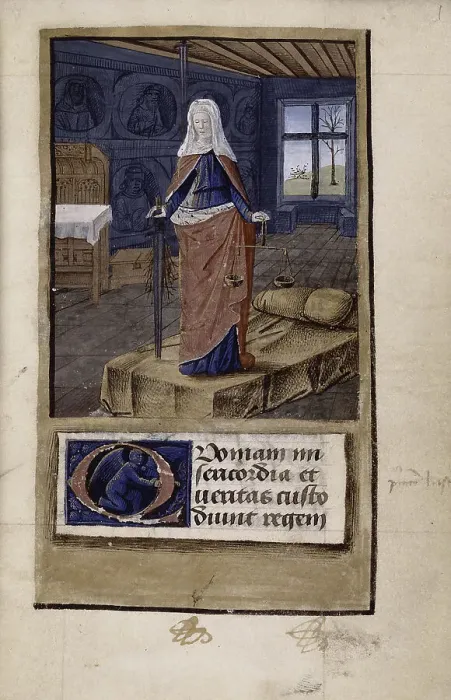 Quoniam mi
sericordia et
ueritas custo
diunt regem